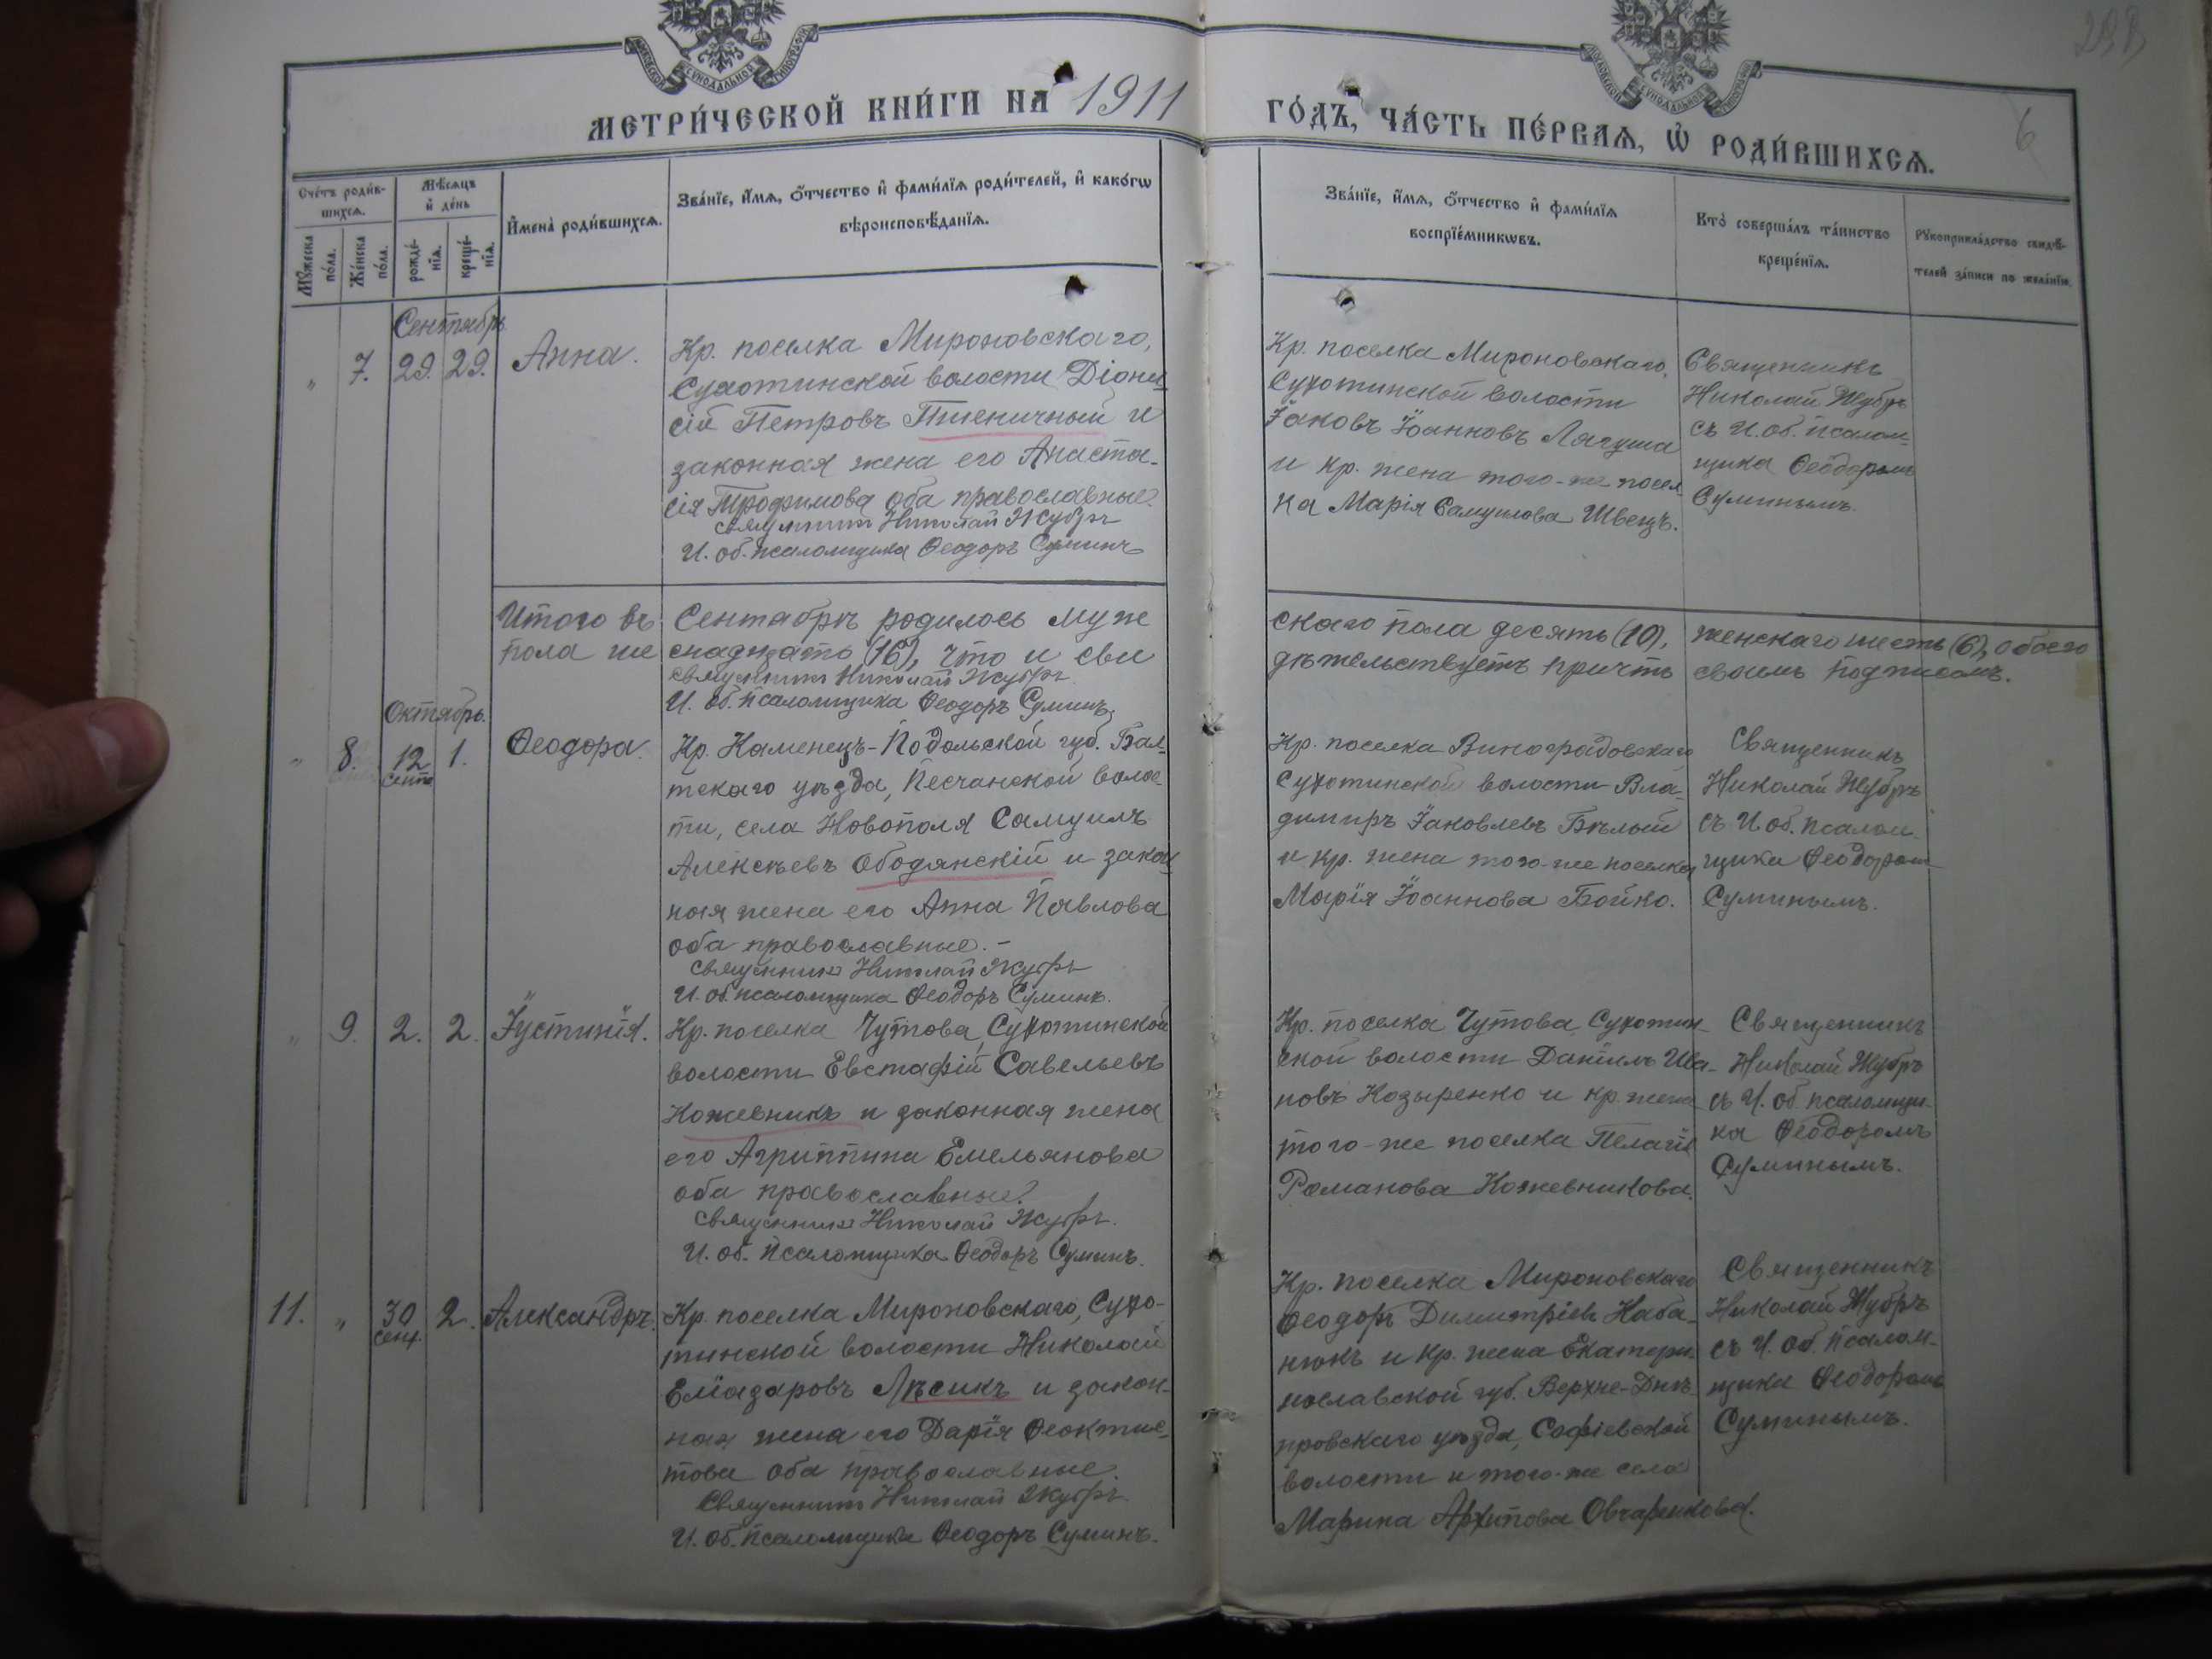 МЕТРИ́ЧЕСКОЙ КНИ́ГИ НА 1911 ГО́ДЪ, ЧА́СТЬ ПЕ́РВАѦ, Ѽ РОДИ́ВШИХСѦ.
6
Сче́тъ роди́в-
шихсѧ.
Мѣ́сѧцъ
и҆ де́нь
Мꙋ́жеска
по́ла.
Же́нска
по́ла.
рожде́-
нїѧ.
креще́-
нїѧ.
И҆мена̀ роди́вшихсѧ.
Зва́нїе, и҆́мѧ, ѻ҆́тчество и҆ фами́лїѧ роди́телей, и҆ како́гѡ
вѣроисповѣ́данїѧ.
Зва́нїе, и҆́мѧ, ѻ҆́тчество и҆ фами́лїѧ
воспрїе́мникѡвъ.
Кто̀ соверша́лъ та́инство
креще́нїѧ.
Рꙋкоприкла́дство свидѣ́-
телей за́писи по жела́нїю.
Сентябрь
" 7. 29. 29. Анна.
Кр. поселка Мироновскаго,
Сухотинской волости Діони-
сій Петровъ Пшеничный и
законная жена его Анаста-
сія Трофимова оба православные.
Священникъ Николай Жубръ
И. об. псаломщика Ѳеодоръ Суминъ
Кр. поселка Мироновскаго,
Сухотинской волости
Іаковъ Іоанновъ Лягуша
и кр. жена того-же посел
ка Марія Самуилова Швецъ.
Священникъ
Николай Жубръ
съ И. об. псалом-
щика Ѳеодоромъ
Суминымъ.
Итого въ Сентябрѣ родилось муже скаго пола десять (10), женскаго шесть (6), обоего
пола ше снадцать (16), что и сви дѣтельствуетъ причтъ своимъ подписомъ.
Священникъ Николай Жубръ
И. об. псаломщика Ѳеодоръ Суминъ.
Октябрь.
" 8. 12 сент 1. Ѳеодора.
Кр. Каменецъ-Подольской губ. Бал-
тскаго уѣзда, Песчанской волос-
ти, села Новополя Самуилъ
Алексѣевъ Ободянскій и закон-
ная жена его Анна Павлова
оба православные.-
Священникъ Николай Жубръ
И. об. псаломщика Ѳеодоръ Суминъ.
Кр. поселка Виноградовскаго
Сухотинской волости Вла-
димиръ Іаковлевъ Бѣлый
и кр. жена того-же поселка
Марія Іоаннова Бойко.
Священникъ
Николай Жубръ
съ И. об. псалом-
щика Ѳеодоромъ
Суминымъ.
" 9. 2. 2. Іустинія.
Кр. поселка Чутова, Сухотинской
волости Евстафій Савельевъ
Кожевникъ и законная жена
его Агриппина Емельянова
оба православные.
Священникъ Николай Жубръ.
И. об. псаломщика Ѳеодоръ Суминъ.
Кр. поселка Чутова Сухотин-
ской волости Даніилъ Ива-
новъ Козыренко и кр. жена
того-же поселка Пелагія
Романова Кожевникова.
Священникъ
Николай Жубръ
съ И. об. псаломщи-
ка Ѳеодоромъ
Суминымъ.
11. " 30 сент. 2. Александръ.
Кр. поселка Мироновскаго, Сухо-
тинской волости Николай
Еліазаровъ Лѣсикъ и закон-
ная жена его Дарія Ѳеоктис-
това оба православные.
Священникъ Николай Жубръ.
И. об. псаломщика Ѳеодоръ Суминъ.
Кр. поселка Мироновскаго
Ѳеодоръ Димитріевъ Каба-
нюкъ и кр. жена Екатери-
нославской губ. Верхне-Днѣ
провскаго уѣзда, Софіевской
волости и того-же села
Марина Архипова Овчаренкова.
Священникъ
Николай Жубръ
съ И. об. псалом-
щика Ѳеодоромъ
Суминымъ.